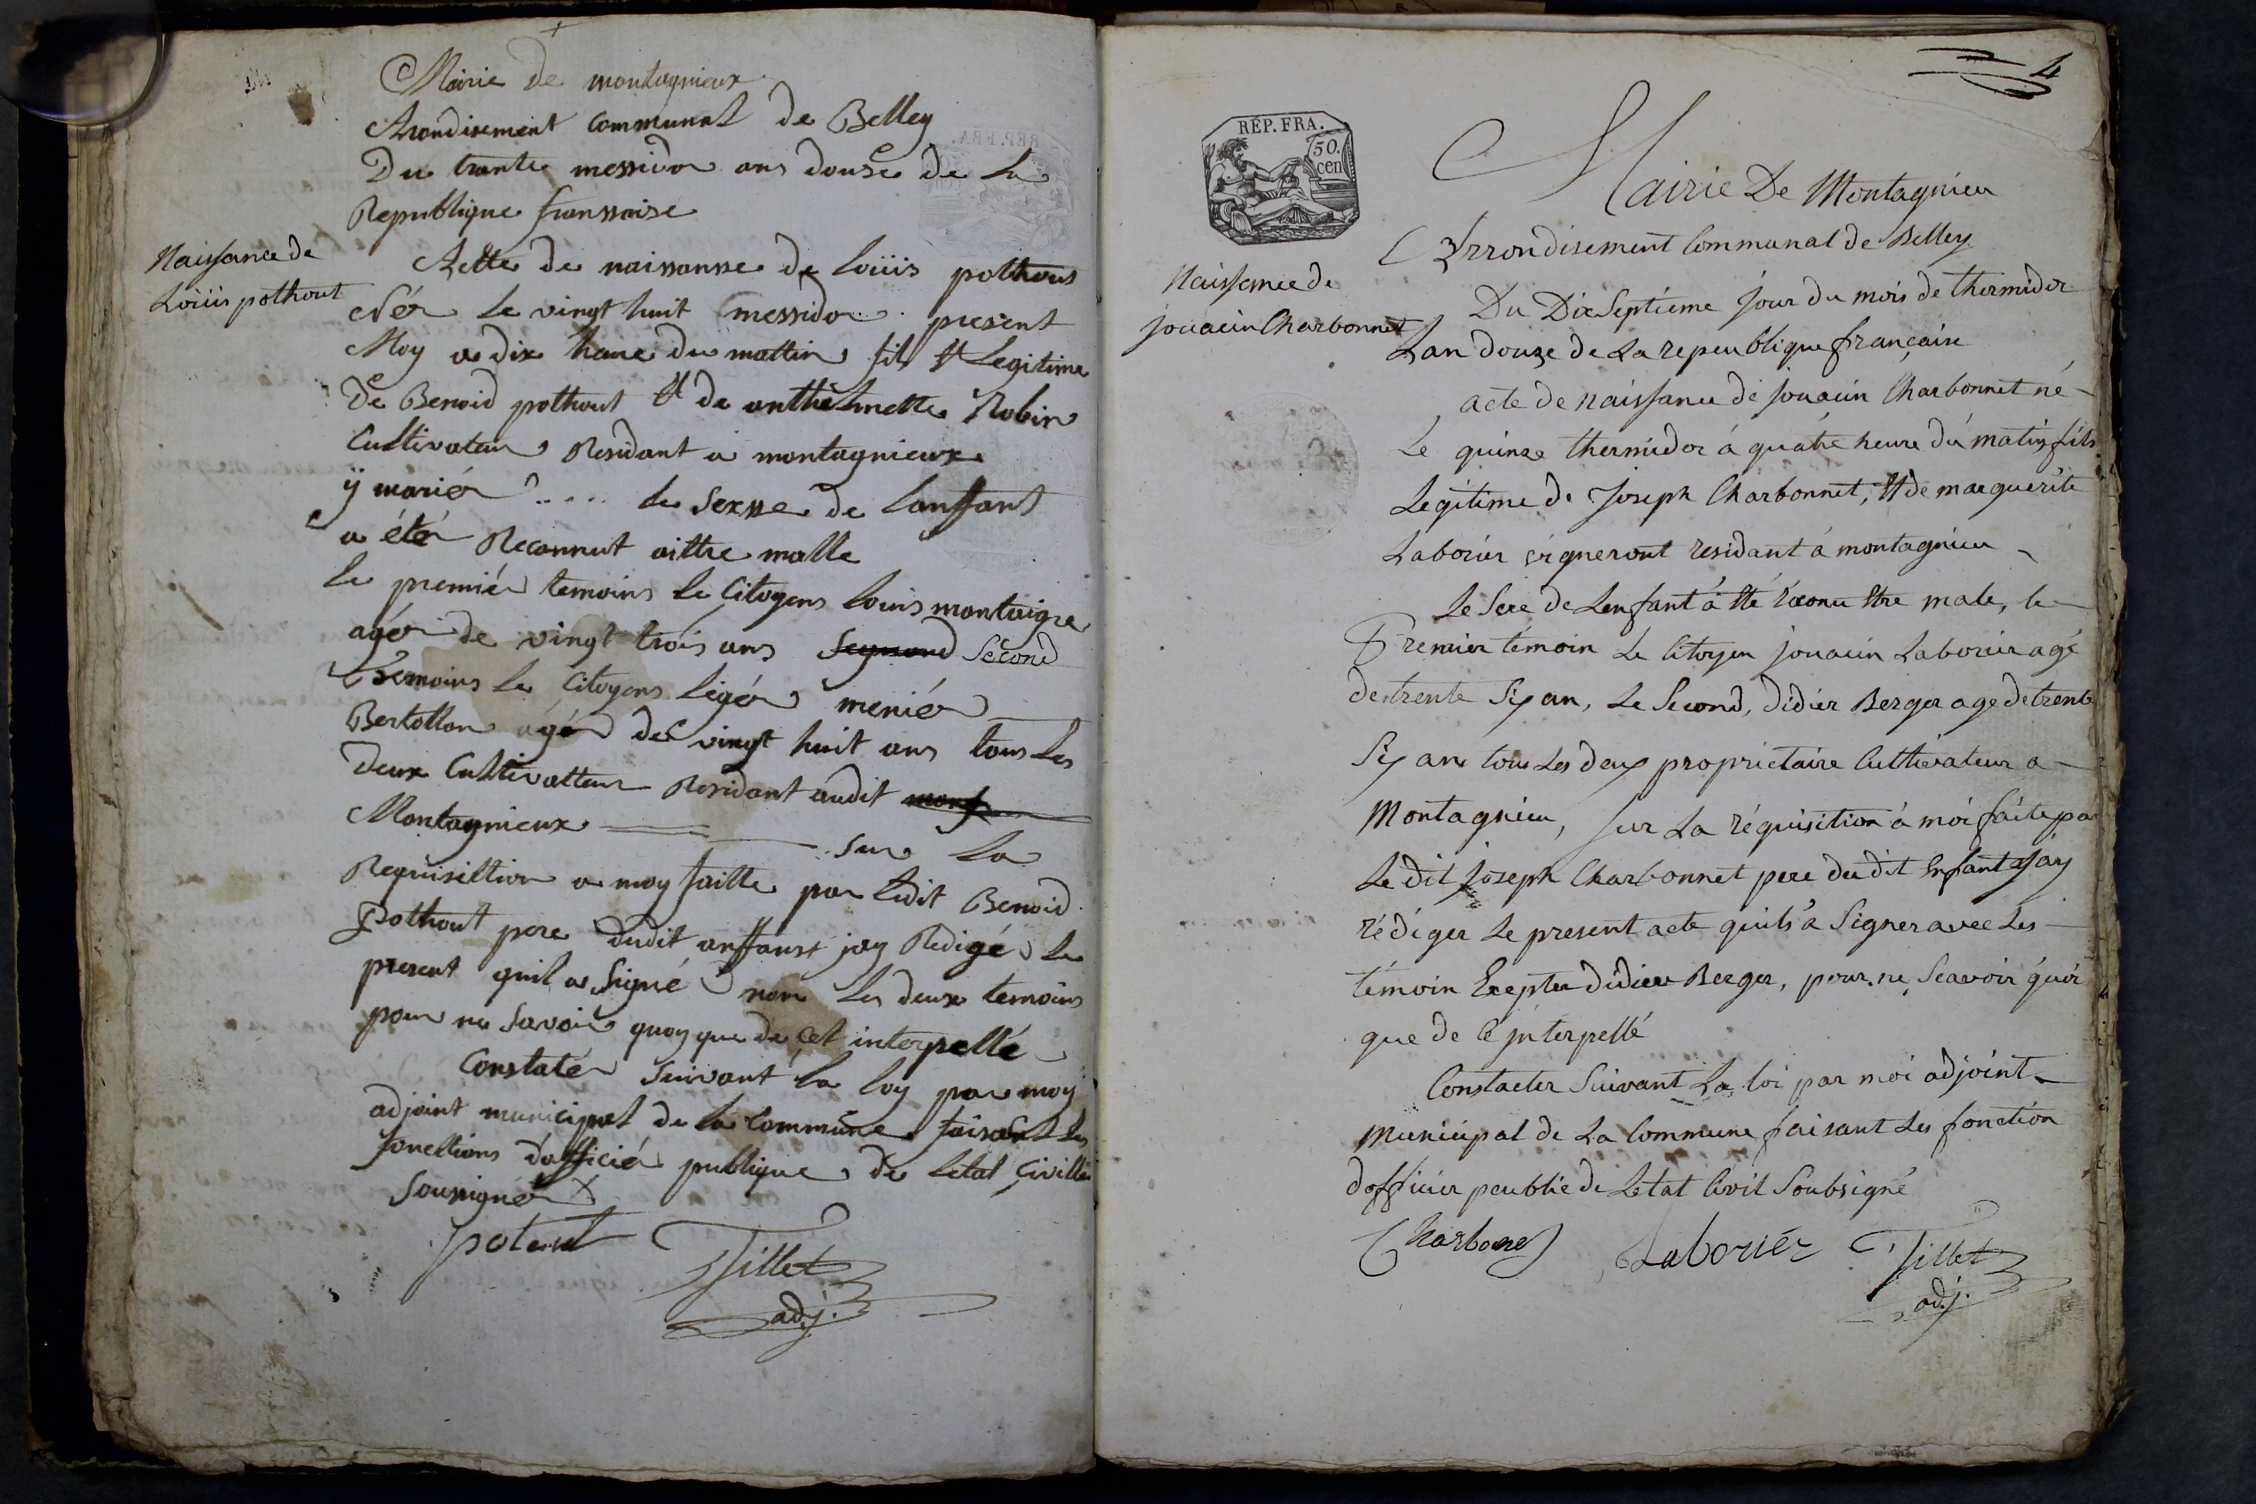 Mairie de montagnieux
Arondisement communal de Belley
Du trante messidor ans douse de la
Republique franssaise
Naissance de
Loüis pothout
Actte de naissansse de loüis pothout
Née le vingt huit messidor present
Moy a dix heure du mattin fils et Legitime
de Benoid pothout et de anthelmette Robin
Cultivateur Residant a montagnieux
ÿ mariér .... le sexsse de lanffant
a étér Reconnut aittre malle
le premiér temoins le Citoyens louis montaigre
agér de vingt trois ans Segnond Second
themoins le Citoyens legér meniér
Bertollon agér de vingt huit ans tous les
deux Cultivatteur Residant audit mont
Montagnieux sur la
Requisittion a moy faitte par ledit Benoid
Pothout pere dudit anffanst jay Redigé le
present quil a Signé non les deux temoins
pour ne savoir quoy que de cet interpellé
Constatér suivant la loy par moy
adjoint municipal de la Commune faisant les
fonctions dofficiér publique de letat Civille
Soussignér
potout Tillet
adj.
4
RÉP. FRA.
50.
cen
Mairie De Montagnieu
Arrondisement Communal de Belley
Naissance de
jouacin Charbonnet
Du Dix Septieme jour du mois de thermidor
Lan douze de La republique française
acte de naissance de jouacin Charbonnet né
Le quinze thermidor á quatre heure du matin fils
Legitime de Joseph Charbonnet, et de marguerite
Laborier vigneront residant á montagnieu
Le sexe de Lenfant á été reconu etre male, le
Premier témoin Le Citoyen jouacin Laborier agé
de trente Six an, Le Second, Didier Berger age de trente
Six ans tous Les deux proprietaire Cultivateur a
Montagnieu, sur La réquisition á moi faite par
Le dit Joseph Charbonnet pere du dit Enfant Jay
rédiger Le present acte quils á Signer avec Les
témoin Excepter didier Berger, pour ne Scavoir quoi
que de Ce interpellé
Constacter Suivant La loi par moi adjoint
Municipal de La Commune faisant Les fonction
dofficier peublic de Letat Civil Soubsigné
Charbonet Laborier Tillet
adj.